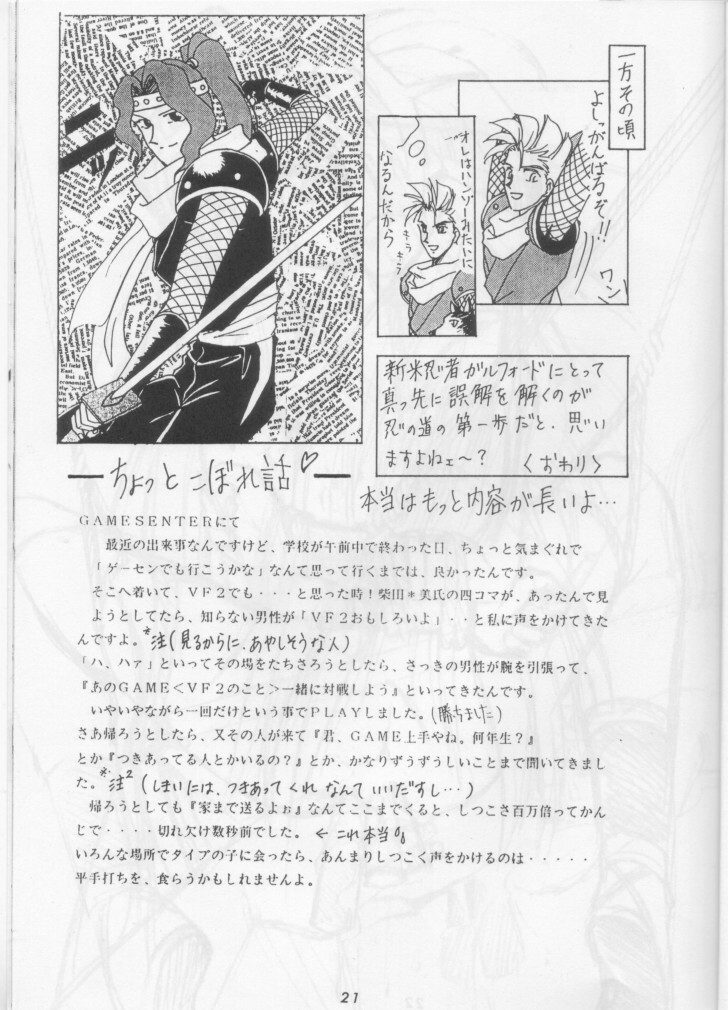 一方その頃
よしっがんばるぞ!!
ワン
オレはハンゾーみたいに
なるんだから
キラ
キラ
新米忍者ガルフォードにとって
真っ先に誤解を解くのが
忍の道の第一歩だと、思い
ますよねェ〜?
〈おわり〉
本当はもっと内容が長いよ…
ーちょっとこぼれ話♡ー
GAMESENTERにて
最近の出来事なんですけど、学校が午前中で終わった日、ちょっと気まぐれで
「ゲーセンでも行こうかな」なんて思って行くまでは、良かったんです。
そこへ着いて、VF2でも・・と思った時!柴田*美氏の四コマが、あったんで見
ようとしてたら、知らない男性が「VF2おもしろいよ」・・と私に声をかけてきた
んですよ。*注(見るからに、あやしそうな人)
「ハ、ハァ」といってその場をたちさろうとしたら、さっきの男性が腕を引張って、
『あのGAME<VF2のこと>一緒に対戦しよう』といってきたんです。
いやいやながら一回だけという事でPLAYしました。(勝ちました)
さあ帰ろうとしたら、又その人が来て『君、GAME上手やね。何年生?』
とか『つきあってる人とかいるの?』とか、かなりずうずうしいことまで聞いてきまし
た。*注2(しまいには、つきあってくれなんていいだすし…)
帰ろうとしても『家まで送るよぉ』なんてここまでくると、しつこさ百万倍ってかん
じで・・・・切れ欠け数秒前でした。←これ本当。
いろんな場所でタイプの子に会ったら、あんまりしつこく声をかけるのは・・・・・
平手打ちを、食らうかもしれませんよ。
21